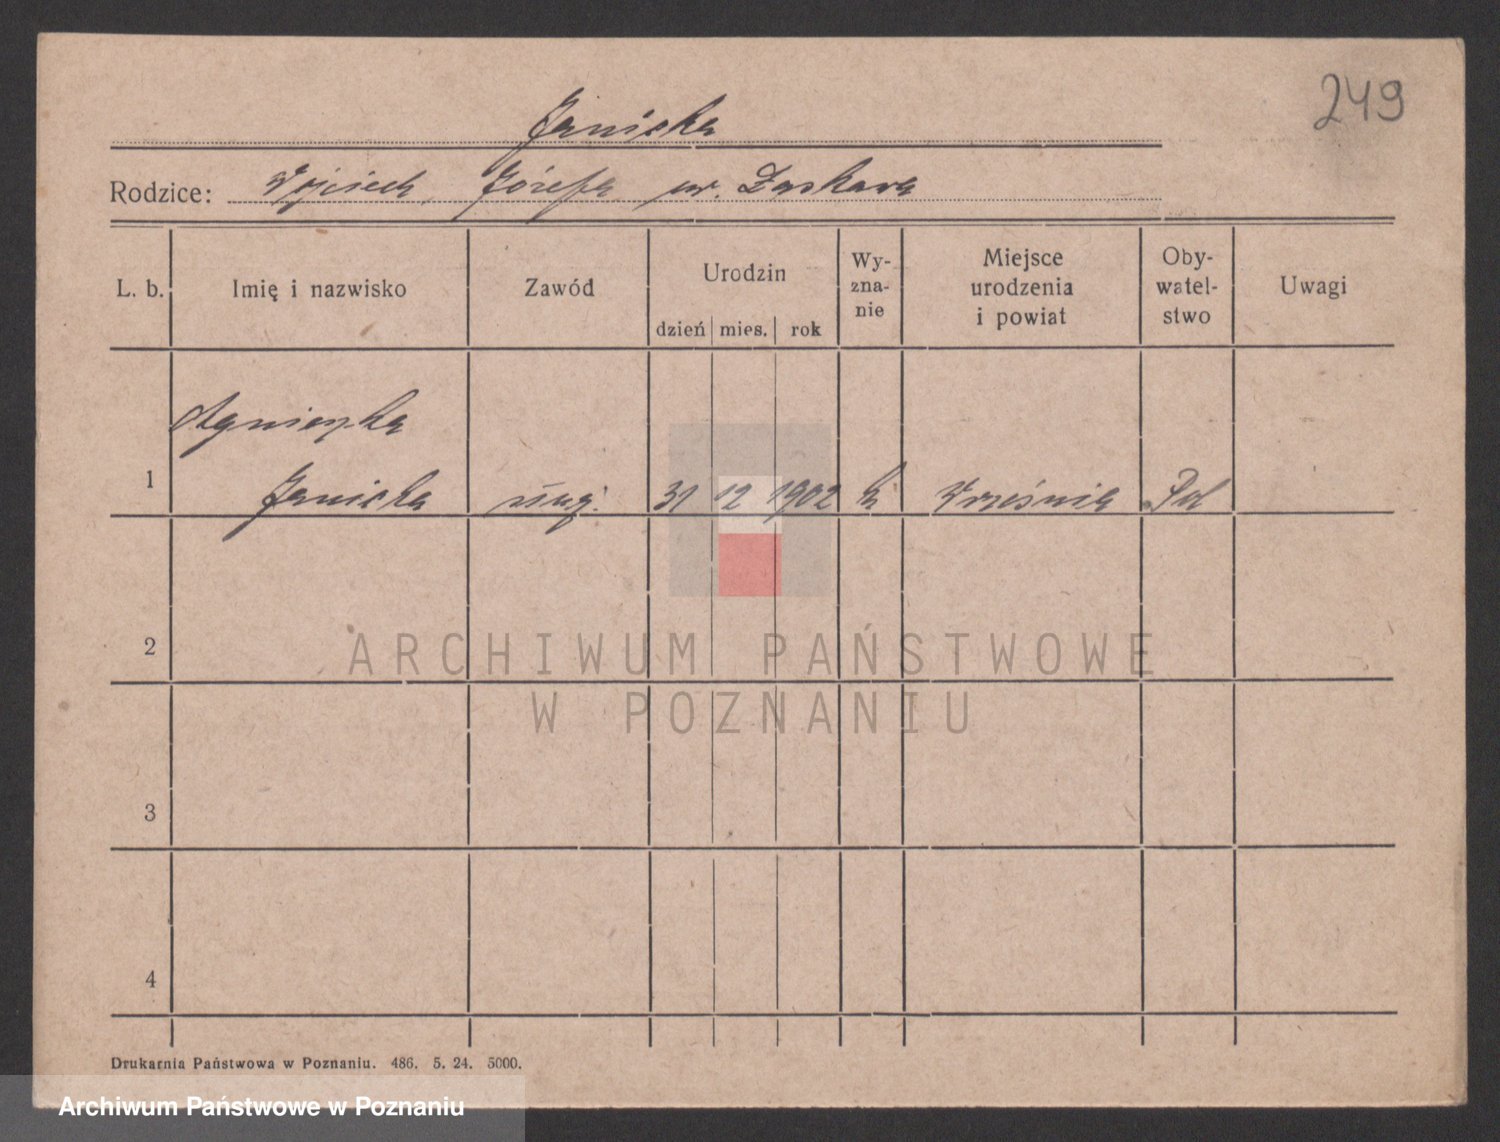 249
Janicka
Rodzice: Wojciech, Józefa ur. Laskara
L. b.
Imię i nazwisko
Zawód
Urodzin
dzień mies. rok
Wy-
zna-
nie
Miejsce
urodzenia
i powiat
Oby-
watel-
stwo
Uwagi
Agnieszka
1 Janicka 31 12 1902 k Września Pol
2
ARCHIWUM PAŃSTWOWE
W POZNANIU
3
4
Drukarnia Państwowa w Poznaniu. 486. 5. 24. 5000.
Archiwum Państwowe w Poznaniu